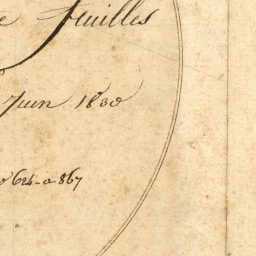 e feuilles
Juin 1830
624 a 867